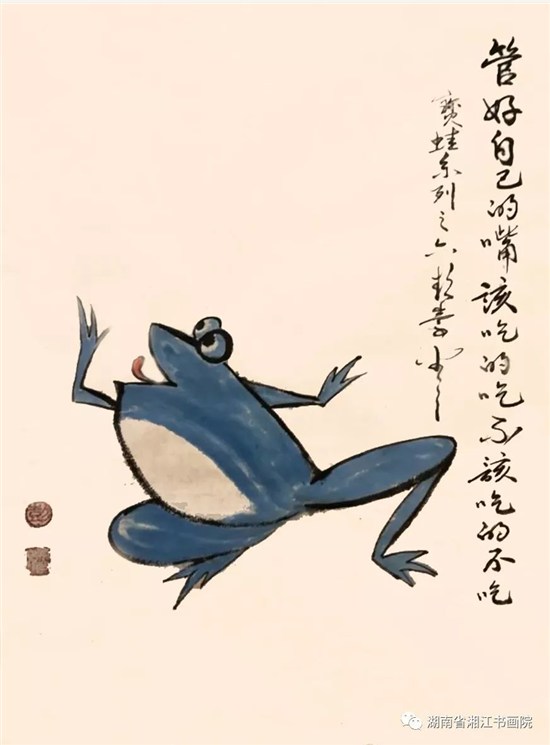 管好自己的嘴該吃的吃不該吃的不吃
寶蛙系列之六
湖南省湘江书画院